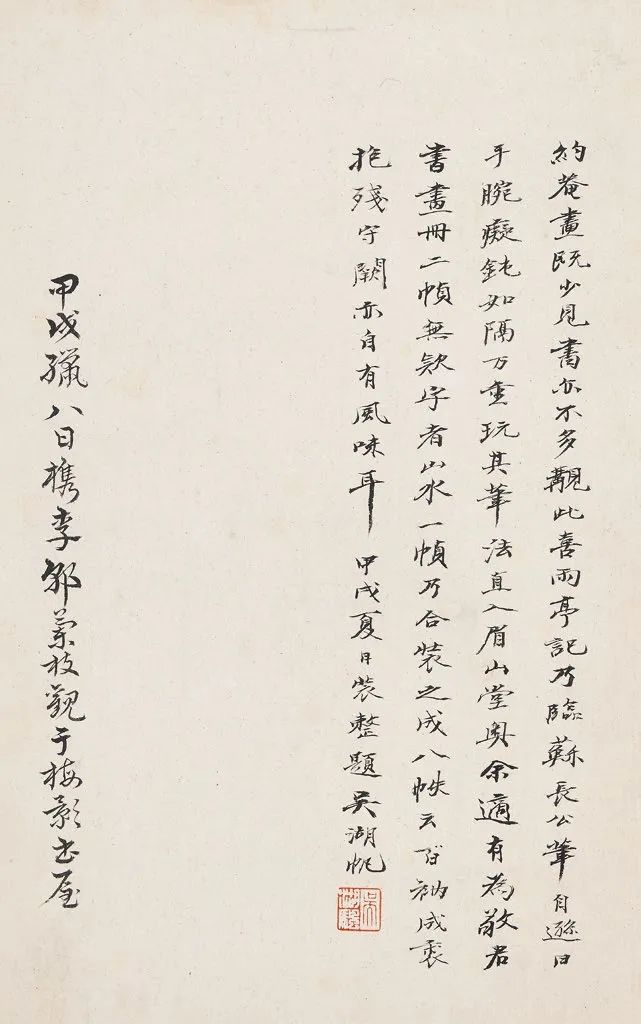 約菴畫既少見書亦不多覯此喜雨亭記乃臨蘇長公筆自遜曰
手腕癡鈍如隔万重玩其筆法直入眉山堂奧余適有為敬君
書畫冊二幀無款字者山水一幀乃合裝之成八帙云衲成裘
抱殘守闕亦自有風味耳 甲戌夏日裝整題吳湖帆
甲戌臘八日檇李郭蘭枝觀于梅影書屋